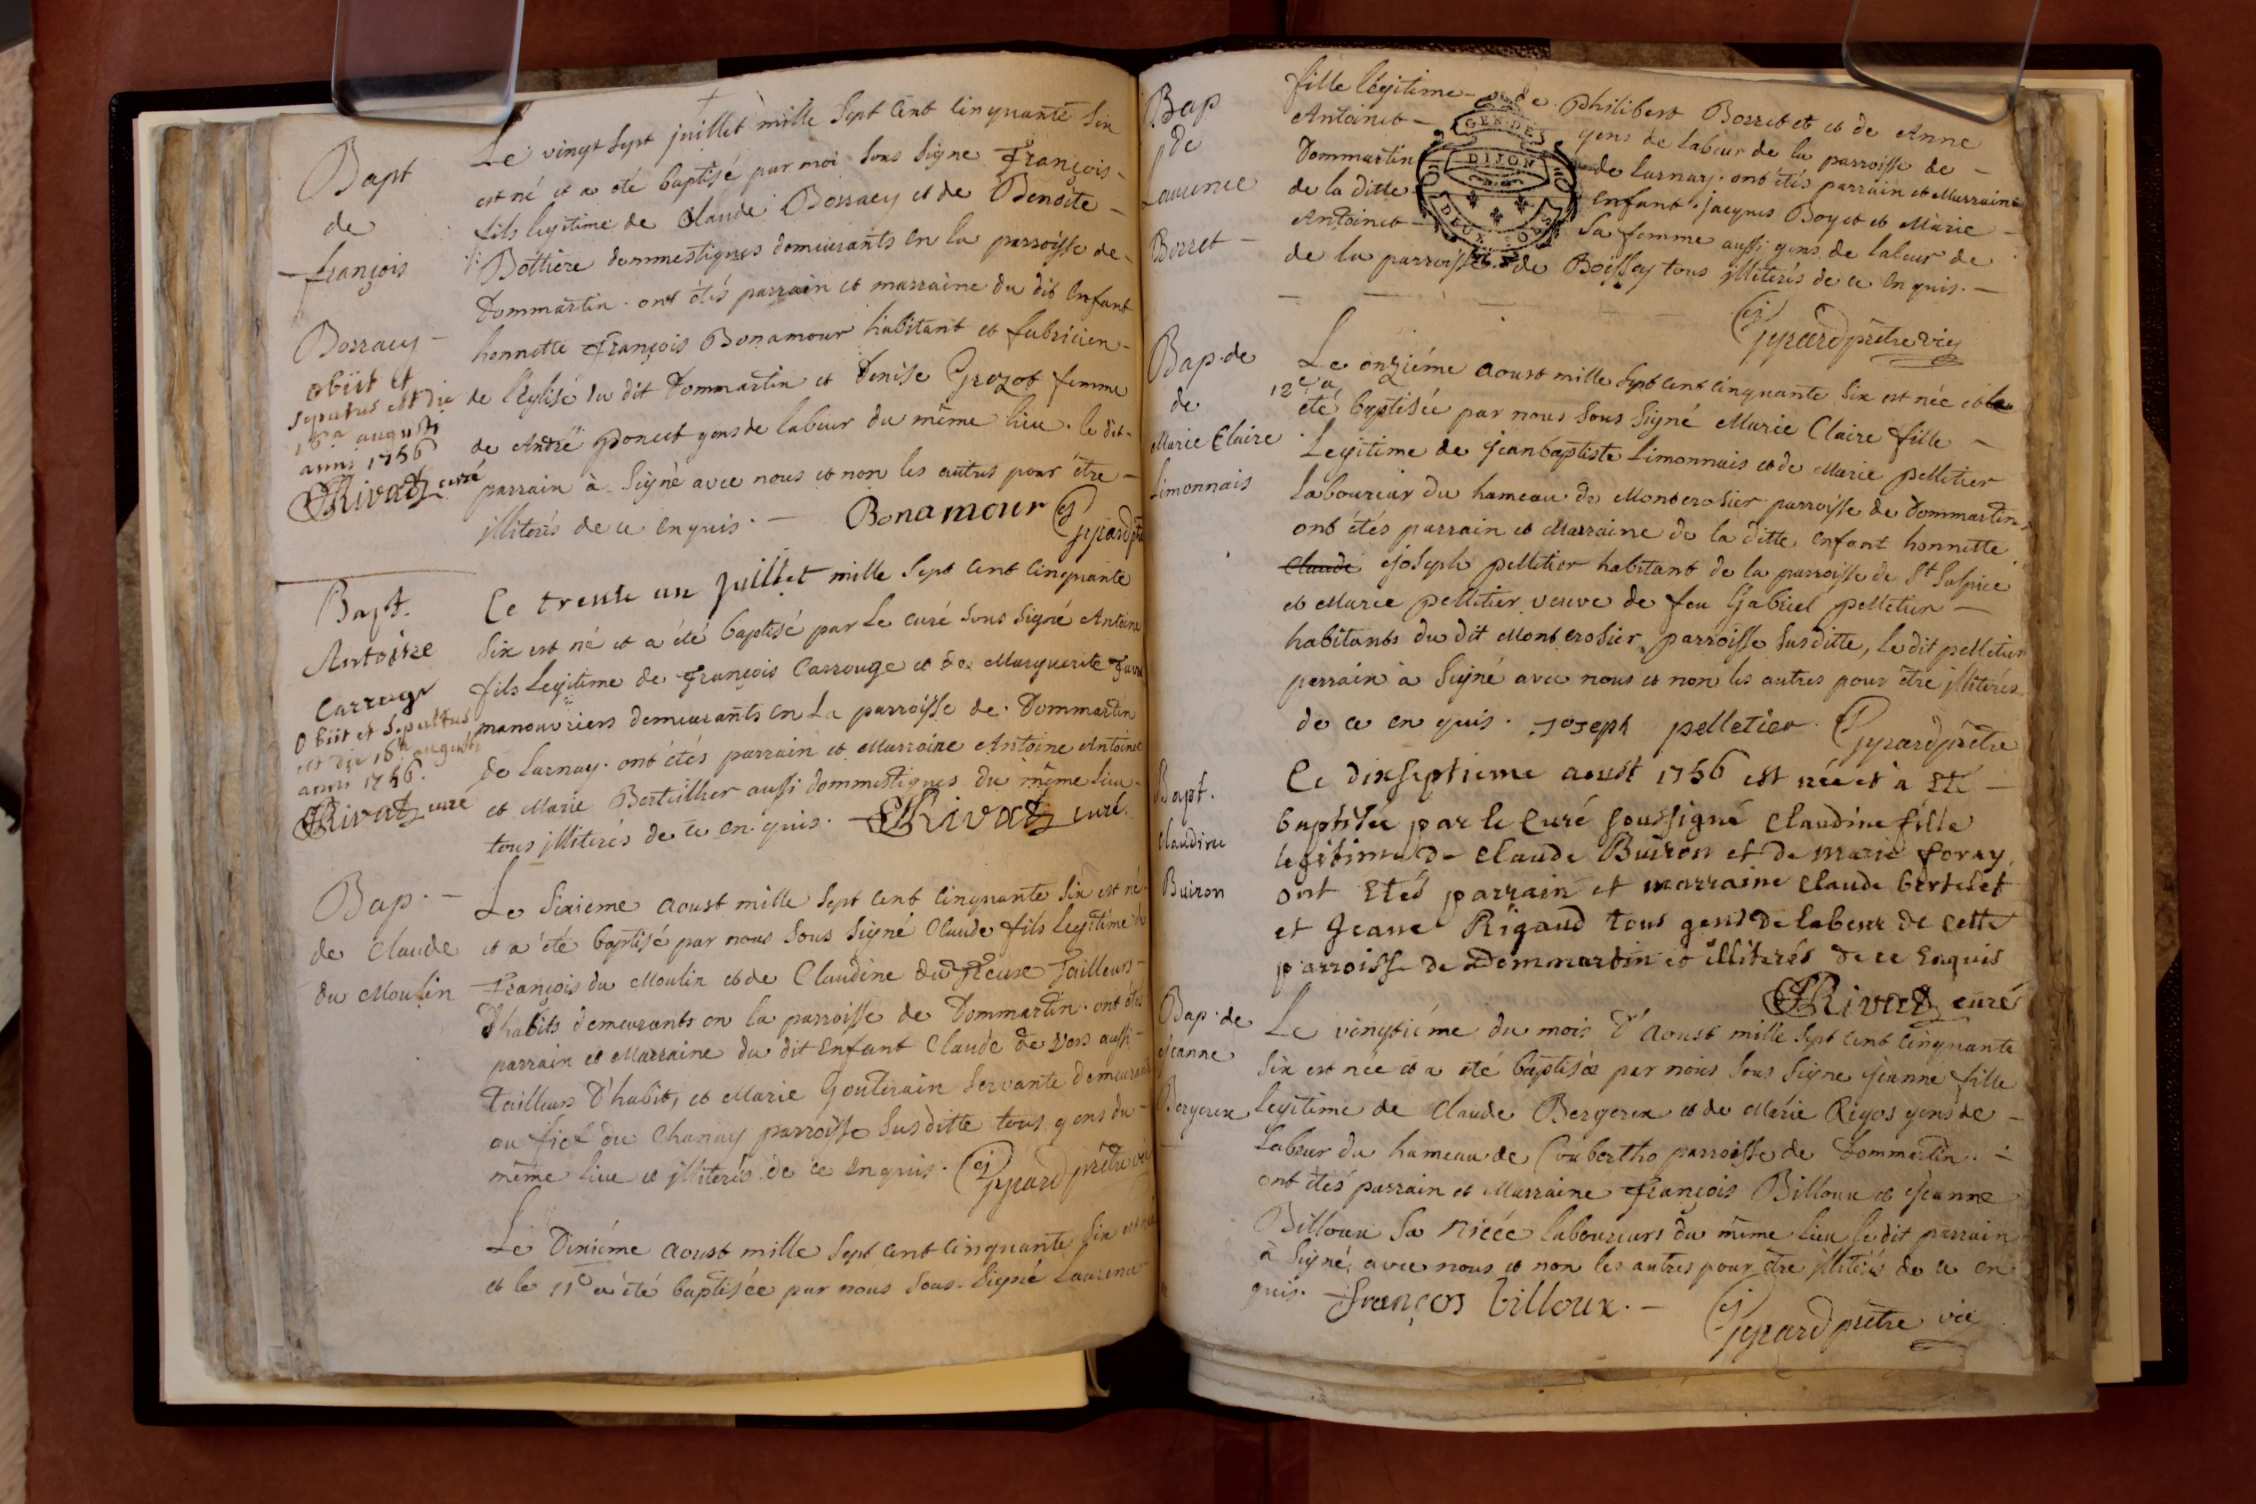 Bapt
de
françois
Borracy
obiit et
sepultus est die
16a augusti
anni 1756
Rivat curé
Le vingt sept juillet mille sept cent cinquante six
est né et a eté baptisé par moi sous signe François
fils legitime de Claude Borracy et de Benoite
Bottiere dommestiques demeurants en la parroisse de
Dommartin. ont étés parrain et marraine du dit enfant
honnette François Bonamour habitant et fabricien
de l'Eglise du dit Dommartin et Denise Grozot femme
de André Poncet gens de labeur du même lieu. le dit
parrain à Signé avec nous et non les autres pour être
illiterés de ce enquis. Bonamour
Bapt.
Antoine
Carruge
Obiit et Sepultus
est die 16a augusti
anni 1756.
Rivat curé
Ce trente un Juillet mille sept cent cinquante
six est né et a été baptisé par Le curé sous signé Antoine
fils Legitime de François Carrouge et de Marguerite
manouvriers demeurants en La parroisse de Dommartin
de Larnay. ont étés parrain et Marraine Antoine Antoine
et Marie Berteillier aussi dommestiques du même lieu
tous illiterés de ce enquis. Rivat curé.
Bap.
de Claude
du Moulin
Le Sixieme aoust mille sept cent cinquante six est né
et a été baptisé par nous sous signé Claude fils Legitime
François du Moulin et de Claudine du Tailleurs
d'habits demeurants en la parroisse de Dommartin. ont étés
parrain et Marraine du dit Enfant Claude de aussi
tailleur d'habit, et Marie Gouterain servante
au fief du Chanay parroisse susditte tous gens du
même lieu et illiterés de ce enquis. prêtre
Le Dixiéme aoust mille sept cent cinquante six
et le 11e a été baptisée par nous sous-signé Laurence
Bap
de
Laurence
Borret
fille légitime de Philibert Borret et de Anne
Antoinet gens de labeur de la parroisse de
Dommartin de Larnay. ont étés parrain et Marraine
de la ditte enfant. jacques Boyet et Marie
Antoinet sa femme aussi gens de labeur de
de la parroisse de Boissey tous illiterés de ce enquis.
GEN DE
DIJON
DEUX SOLS
prêtre vic
Bap. de
de
Marie Claire
Limonnais
Le onziéme aoust mille sept cent cinquante six est née et le
12e a
été baptisée par nous sous signé Marie Claire fille
Legitime de Jean baptiste Limonnais et de Marie pelletier
Laboureur du hameau de Montcrosier parroisse de Dommartin
ont étés parrain et Marraine de la ditte enfant honnette
Claude joseph pelletier habitant de la parroisse de St Sulpice
et Marie pelletier veuve de feu Gabriel pelletier
habitants du dit Montcrosier parroisse susditte, Le dit pelletier
parrain à signé avec nous et non les autres pour être illiterés
de ce en quis. Joseph pelletier. prêtre
Bapt.
Claudine
Buiron
Ce dixseptieme aoust 1756 est née et à Eté
baptisée par le Curé soussigné Claudine fille
legitime de Claude Buiron et de marie foray
ont Etés parrain et marraine Claude bertelet
et Jeanne Rigaud tous gens de labeur de cette
parroisse de Dommartin et illiterés de ce Enquis
Rivat curé
Bap. de
jeanne
Bergerex
Le vingtiéme du mois d'aoust mille sept cent cinquante
six est née et a eté baptisée par nous sous signe jeanne fille
Legitime de Claude Bergerex et de Marie Rigos gens de
Labeur du hameau de Coubertho parroisse de Dommartin.
ont étés parrain et Marraine François Billoux et jeanne
Billoux sa niéce laboureurs du même lieu le dit parrain
à signé, avec nous et non les autres pour être illiterés de ce en
quis. françois billoux. prêtre vic